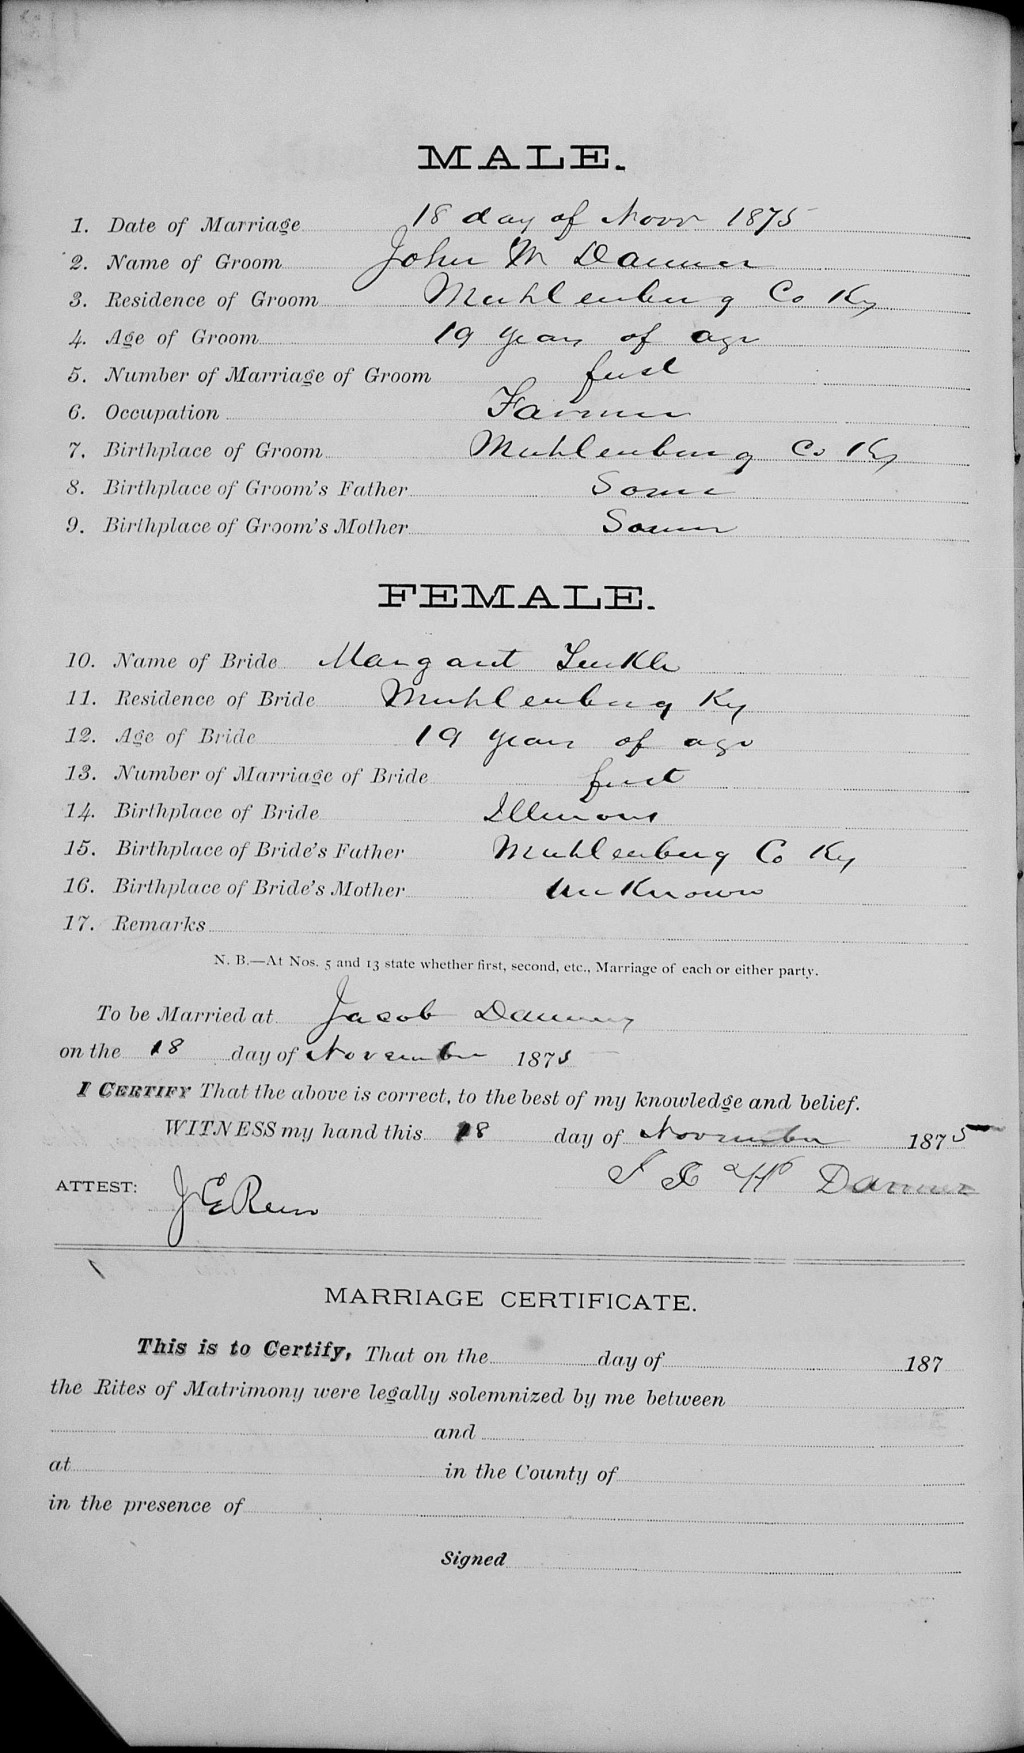 MALE.
1. Date of Marriage 18 day of Novr 1875
2. Name of Groom John M Danner
3. Residence of Groom Muhlenburg Co Ky
4. Age of Groom 19 years of age
5. Number of Marriage of Groom first
6. Occupation Farmer
7. Birthplace of Groom Muhlenburg Co Ky
8. Birthplace of Groom's Father Same
9. Birthplace of Groom's Mother Same
FEMALE.
10. Name of Bride Margaret
11. Residence of Bride Muhlenburg Ky
12. Age of Bride 19 years of age
13. Number of Marriage of Bride first
14. Birthplace of Bride Illinois
15. Birthplace of Bride's Father Muhlenburg Co Ky
16. Birthplace of Bride's Mother Unknown
17. Remarks
N. B.—At Nos. 5 and 13 state whether first, second, etc., Marriage of each or either party.
To be Married at Jacob Danners
on the 18 day of November 1875
I CERTIFY That the above is correct, to the best of my knowledge and belief.
WITNESS my hand this 18 day of November 1875
Danner
ATTEST: J E
MARRIAGE CERTIFICATE.
This is to Certify, That on the day of 187
the Rites of Matrimony were legally solemnized by me between
and
at in the County of
in the presence of
Signed